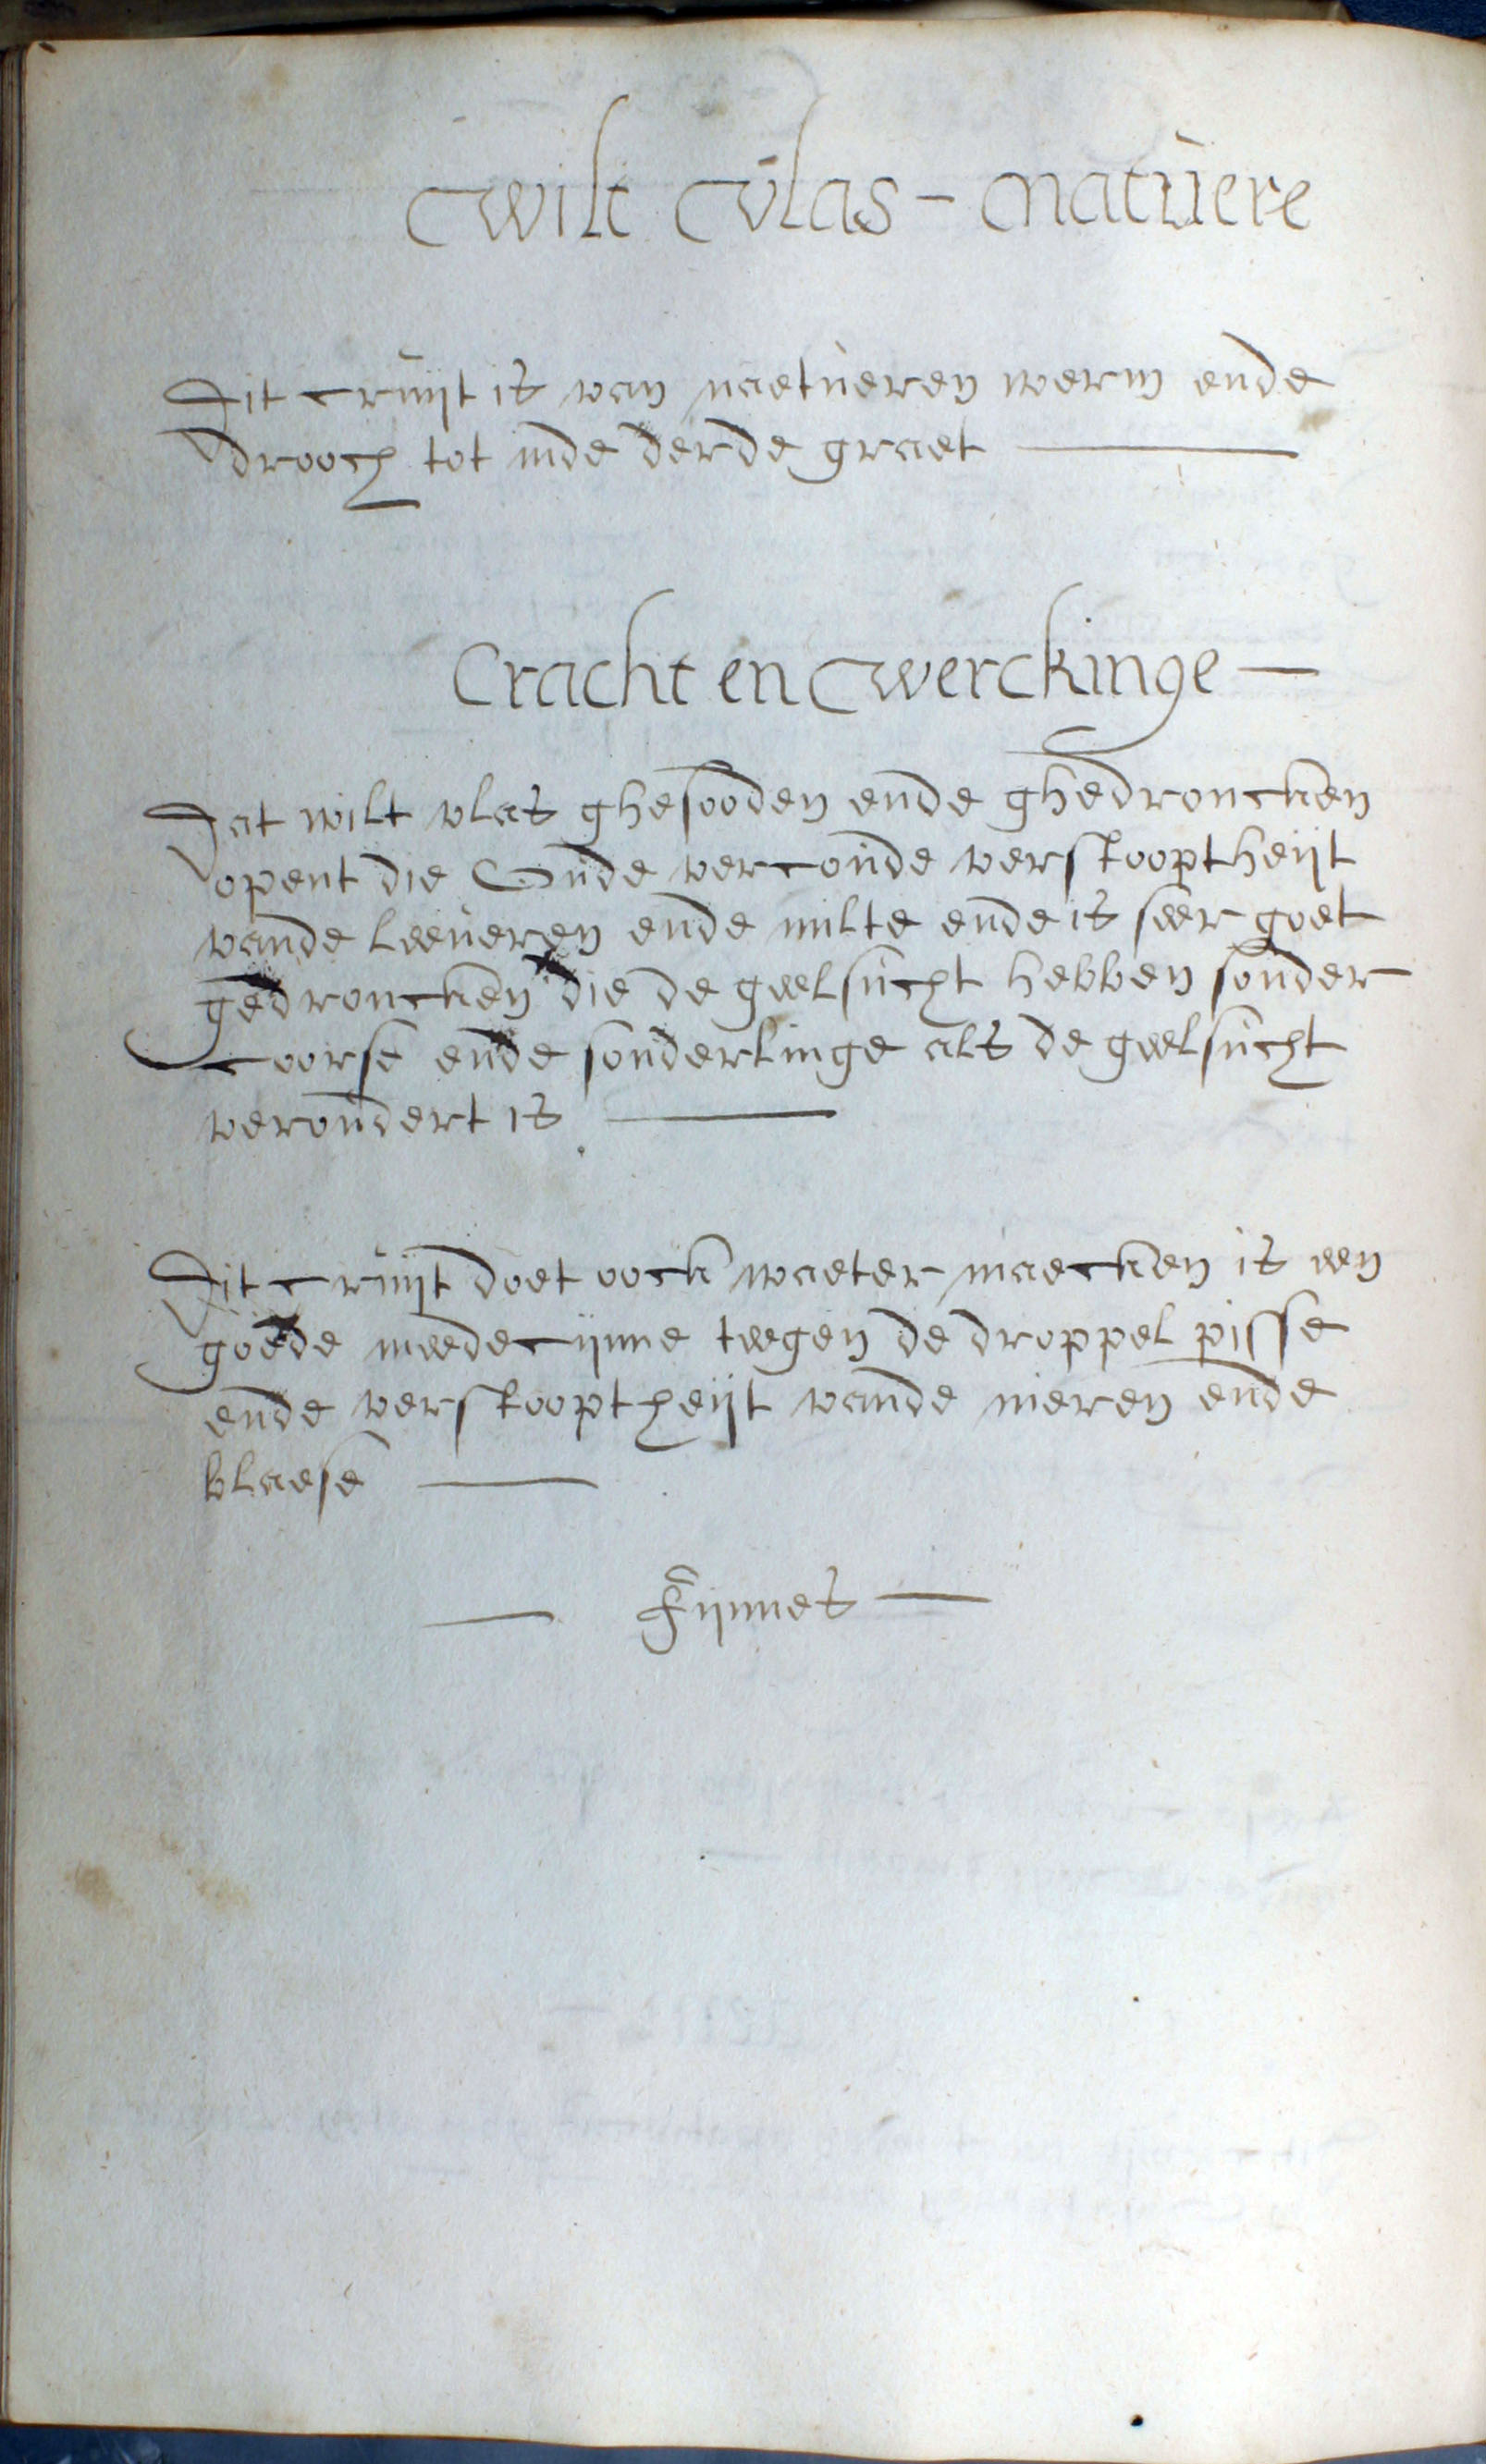 wilt vlas - natuere
Dit cruijt is van naetueren werm ende
drooch tot inde derde graet
Cracht en werckinge
Dat wilt vlas ghesooden ende ghedroncken
opent die Oude vercoude verstooptheijt
vande leeueren ende milte ende is seer goet
gedroncken die de geelsucht hebben sonder
coorse ende sonderlinge als de geelsucht
veroudert is
Dit cruijt doet oock waeter maecken is een
goede meedecijnne teegen de droppel pisse
ende verstooptheijt vande nieren ende
blaese
Fijnnes